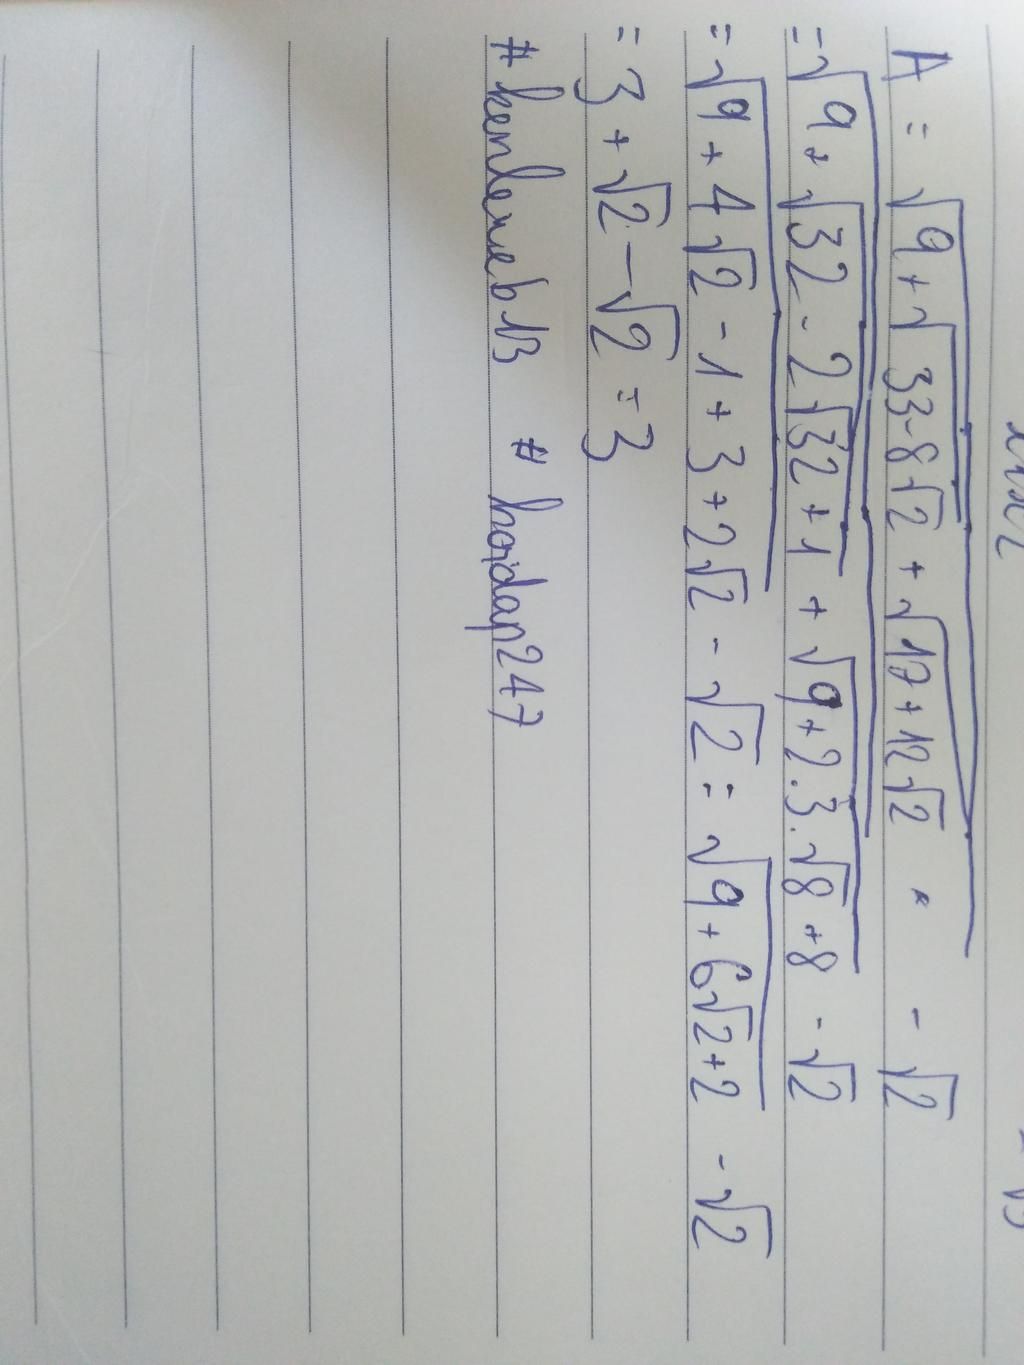 A = √(9 + √(33 - 8√2) + √(17 + 12√2)) - √2
= √(9 + √(32 - 2√32 + 1) + √(9 + 2.3.√8 + 8)) - √2
= √(9 + 4√2 - 1 + 3 + 2√2) - √2 = √(9 + 6√2 + 2) - √2
= 3 + √2 - √2 = 3
# kenlele13 # hoidap247